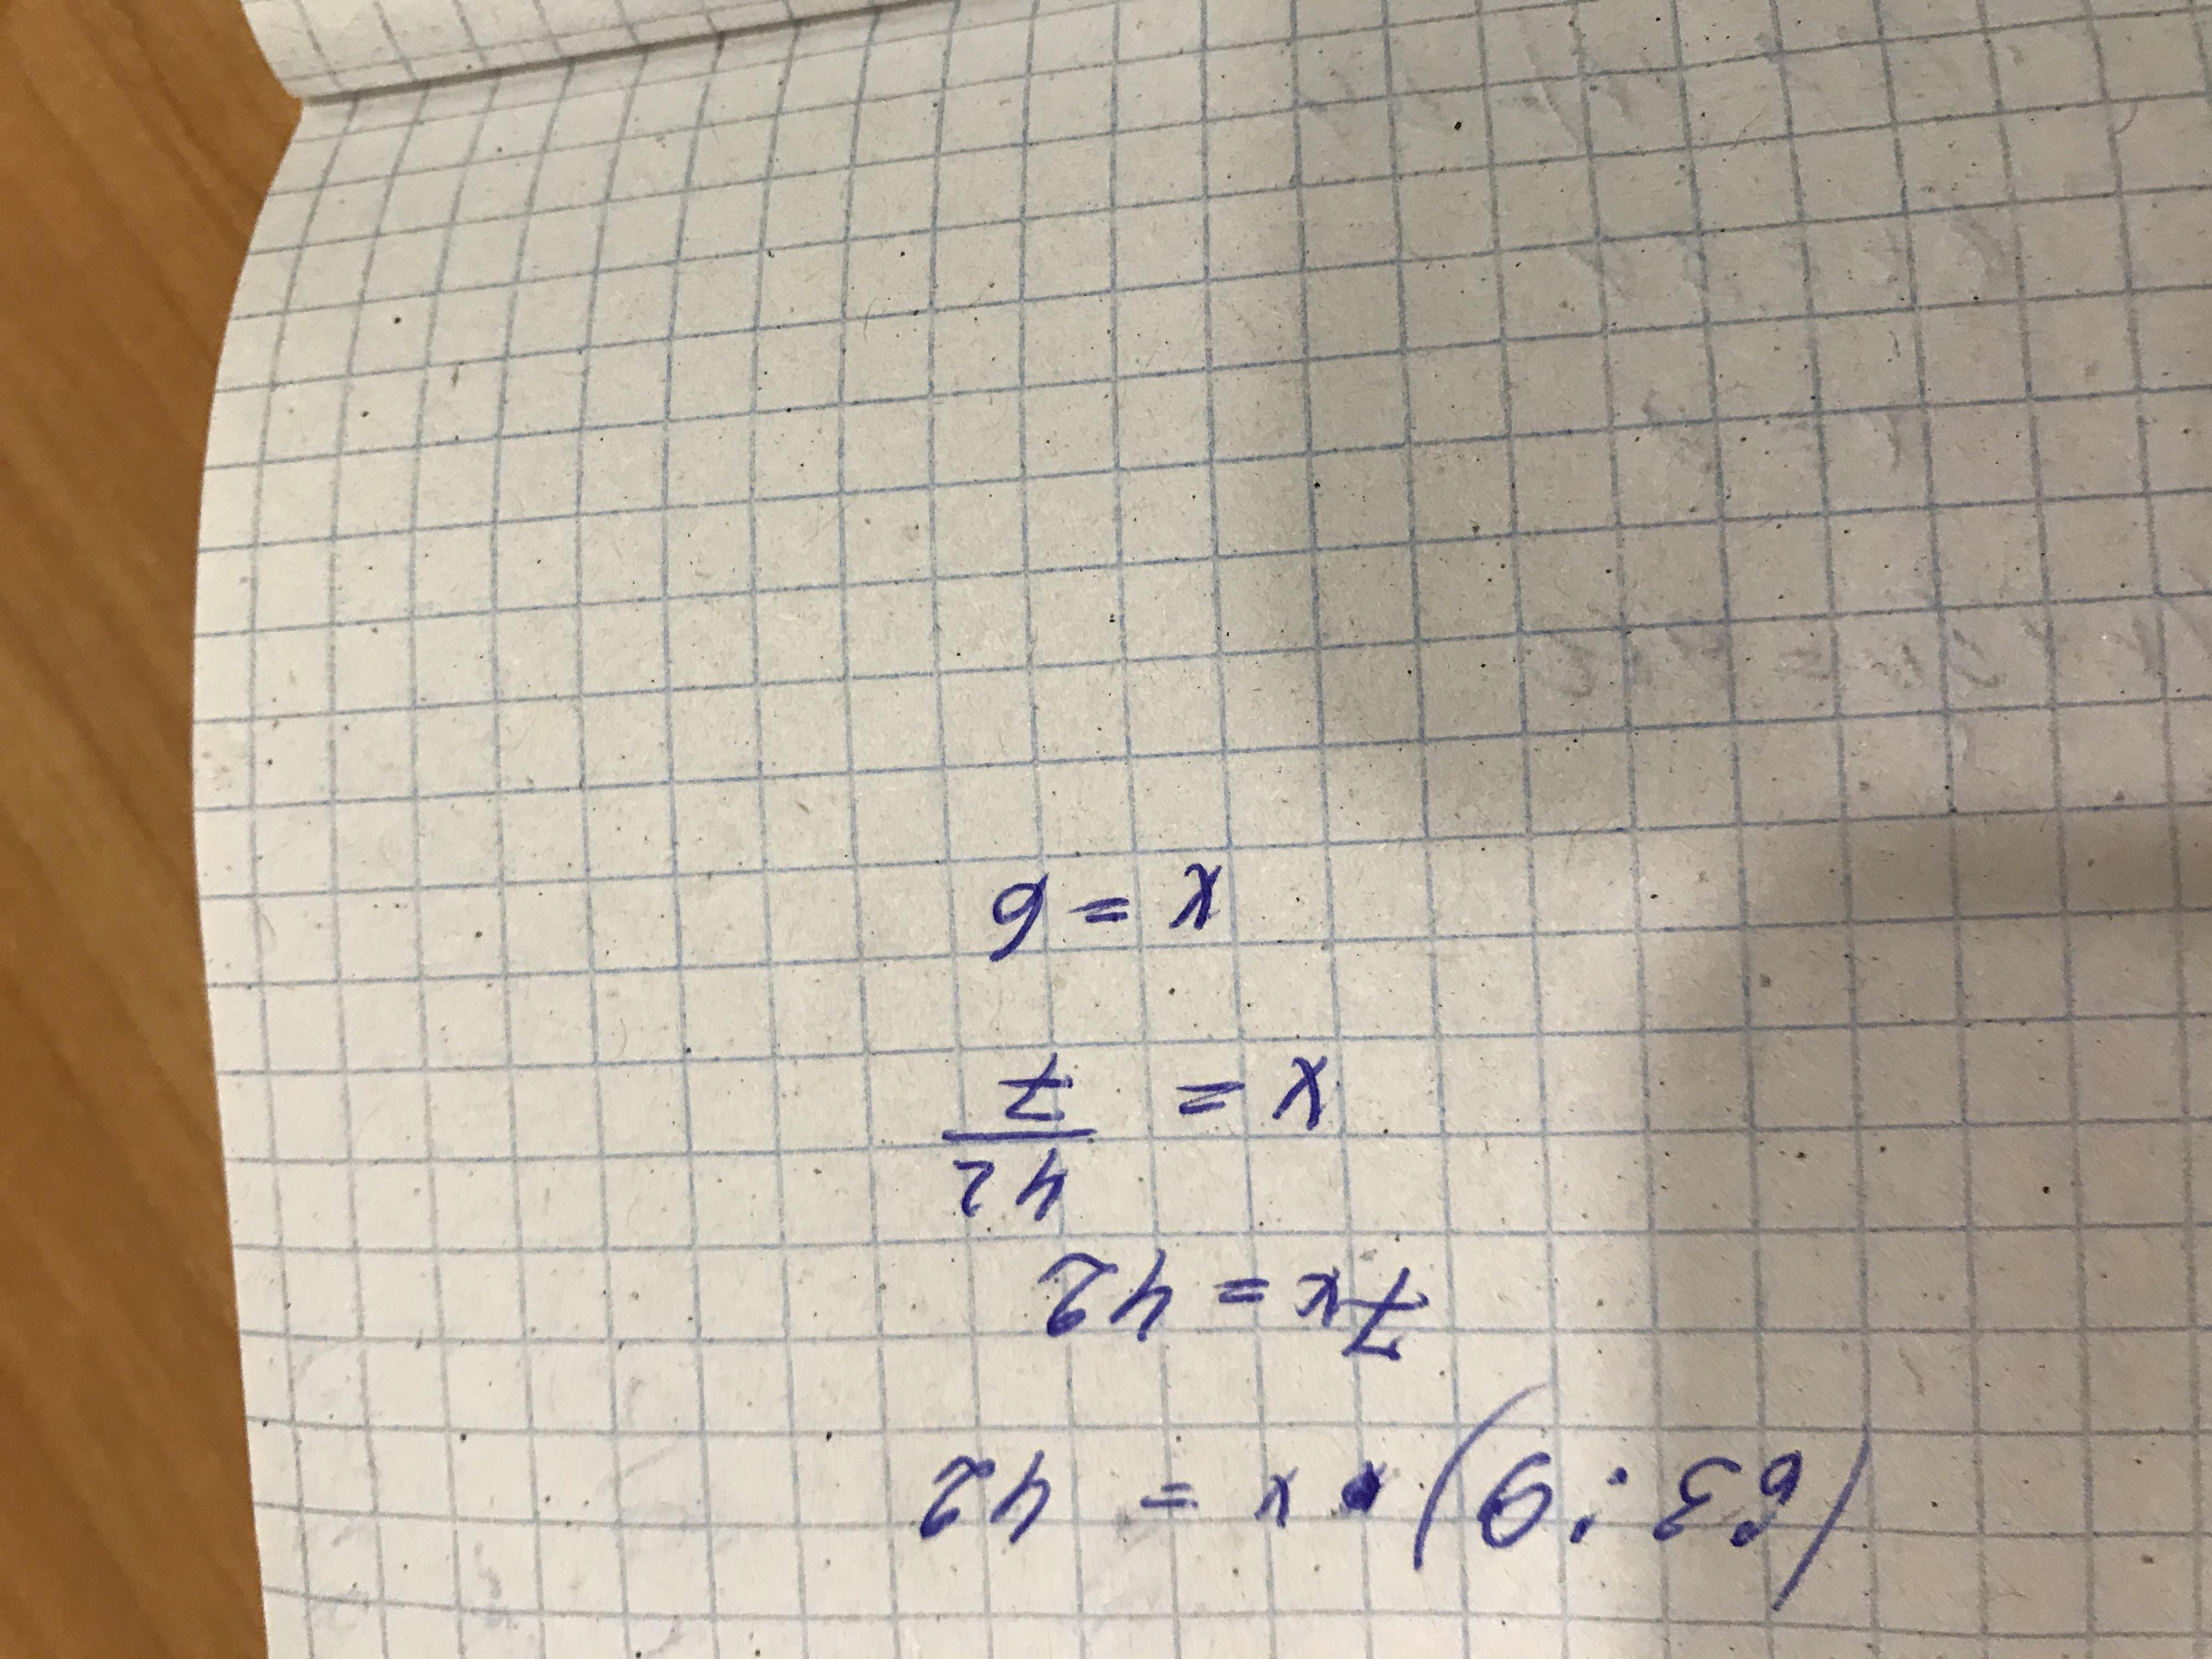 (63 : 9) • x = 42
7x = 42
x = 42/7
x = 6